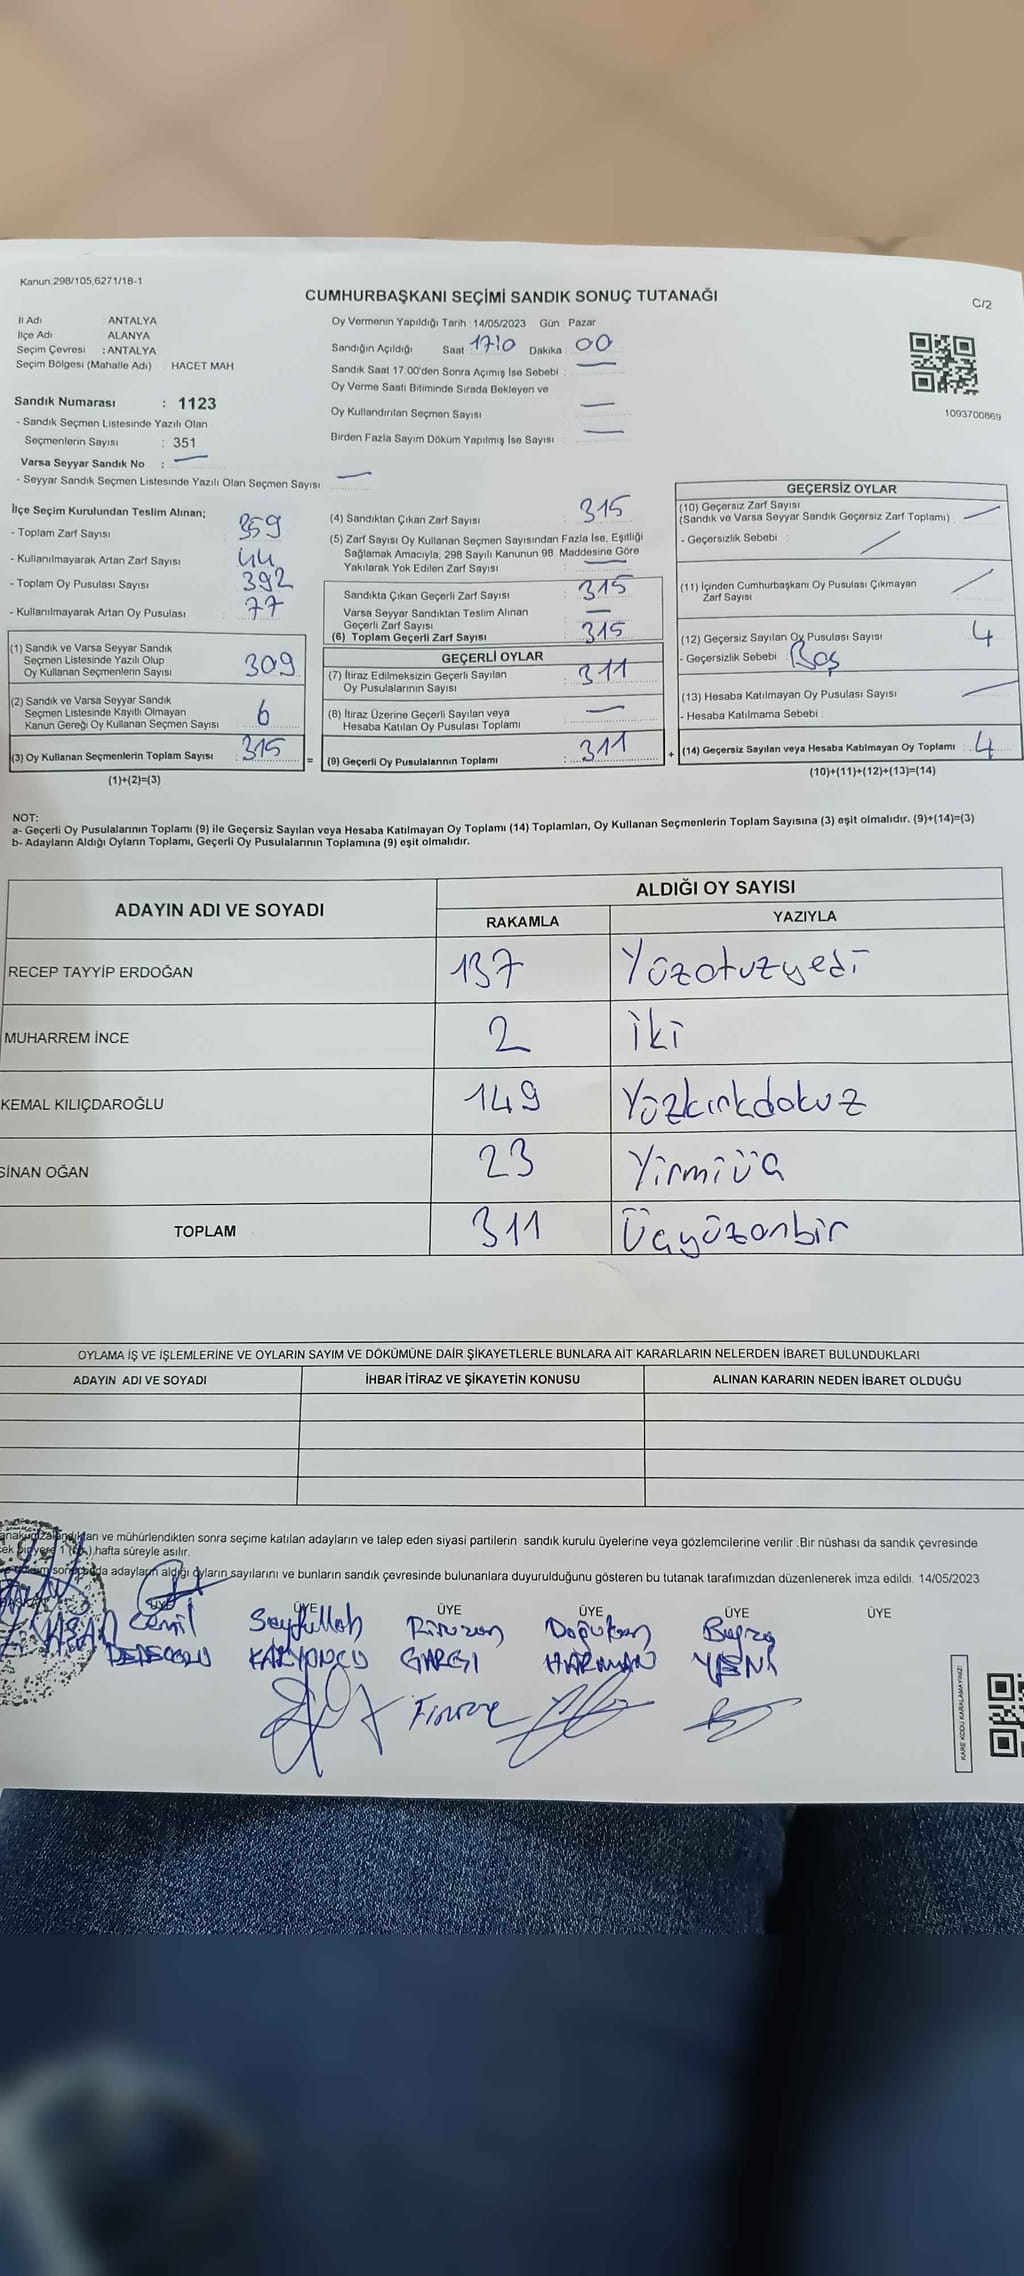 Kanun.298/105,6271/18-1
CUMHURBAŞKANI SEÇİMİ SANDIK SONUÇ TUTANAĞI
C/2
İl Adı : ANTALYA
İlçe Adı : ALANYA
Seçim Çevresi : ANTALYA
Seçim Bölgesi (Mahalle Adı) : HACET MAH.
Sandık Numarası : 1123
- Sandık Seçmen Listesinde Yazılı Olan
Seçmenlerin Sayısı : 351
Varsa Seyyar Sandık No : —
- Seyyar Sandık Seçmen Listesinde Yazılı Olan Seçmen Sayısı —
Oy Vermenin Yapıldığı Tarih : 14/05/2023 Gün : Pazar
Sandığın Açıldığı Saat : 17:0 Dakika : 00
Sandık Saat 17.00'den Sonra Açımış İse Sebebi : —
Oy Verme Saati Bitiminde Sırada Bekleyen ve
Oy Kullandırılan Seçmen Sayısı —
Birden Fazla Sayım Döküm Yapılmış İse Sayısı —
1093700869
İlçe Seçim Kurulundan Teslim Alınan;
- Toplam Zarf Sayısı 359
- Kullanılmayarak Artan Zarf Sayısı 44
- Toplam Oy Pusulası Sayısı 392
- Kullanılmayarak Artan Oy Pusulası 77
(1) Sandık ve Varsa Seyyar Sandık
Seçmen Listesinde Yazılı Olup
Oy Kullanan Seçmenlerin Sayısı 309
(2) Sandık ve Varsa Seyyar Sandık
Seçmen Listesinde Kayıtlı Olmayan
Kanun Gereği Oy Kullanan Seçmen Sayısı 6
(3) Oy Kullanan Seçmenlerin Toplam Sayısı : 315
(1)+(2)=(3)
=
(4) Sandıktan Çıkan Zarf Sayısı : 315
(5) Zarf Sayısı Oy Kullanan Seçmen Sayısından Fazla İse, Eşitliği
Sağlamak Amacıyla, 298 Sayılı Kanunun 98. Maddesine Göre
Yakılarak Yok Edilen Zarf Sayısı : —
Sandıkta Çıkan Geçerli Zarf Sayısı : 315
Varsa Seyyar Sandıktan Teslim Alınan
Geçerli Zarf Sayısı : —
(6) Toplam Geçerli Zarf Sayısı : 315
GEÇERLİ OYLAR
(7) İtiraz Edilmeksizin Geçerli Sayılan
Oy Pusulalarının Sayısı : 311
(8) İtiraz Üzerine Geçerli Sayılan veya
Hesaba Katılan Oy Pusulası Toplamı : —
(9) Geçerli Oy Pusulalarının Toplamı : 311
+
GEÇERSİZ OYLAR
(10) Geçersiz Zarf Sayısı
(Sandık ve Varsa Seyyar Sandık Geçersiz Zarf Toplamı) —
- Geçersizlik Sebebi : —
(11) İçinden Cumhurbaşkanı Oy Pusulası Çıkmayan
Zarf Sayısı —
(12) Geçersiz Sayılan Oy Pusulası Sayısı 4
- Geçersizlik Sebebi : Boş
(13) Hesaba Katılmayan Oy Pusulası Sayısı —
- Hesaba Katılmama Sebebi :
(14) Geçersiz Sayılan veya Hesaba Katılmayan Oy Toplamı : 4
(10)+(11)+(12)+(13)=(14)
NOT:
a- Geçerli Oy Pusulalarının Toplamı (9) ile Geçersiz Sayılan veya Hesaba Katılmayan Oy Toplamı (14) Toplamları, Oy Kullanan Seçmenlerin Toplam Sayısına (3) eşit olmalıdır. (9)+(14)=(3)
b- Adayların Aldığı Oyların Toplamı, Geçerli Oy Pusulalarının Toplamına (9) eşit olmalıdır.
ADAYIN ADI VE SOYADI ALDIĞI OY SAYISI
RAKAMLA YAZIYLA
RECEP TAYYİP ERDOĞAN 137 Yüzotuzyedi
MUHARREM İNCE 2 iki
KEMAL KILIÇDAROĞLU 149 Yüzkırkdokuz
SİNAN OĞAN 23 Yirmiüç
TOPLAM 311 Üçyüzonbir
OYLAMA İŞ VE İŞLEMLERİNE VE OYLARIN SAYIM VE DÖKÜMÜNE DAİR ŞİKAYETLERLE BUNLARA AİT KARARLARIN NELERDEN İBARET BULUNDUKLARI
ADAYIN ADI VE SOYADI İHBAR İTİRAZ VE ŞİKAYETİN KONUSU ALINAN KARARIN NEDEN İBARET OLDUĞU
ve mühürlendikten sonra seçime katılan adayların ve talep eden siyasi partilerin sandık kurulu üyelerine veya gözlemcilerine verilir .Bir nüshası da sandık çevresinde
1 hafta süreyle asılır.
adayların aldığı oyların sayılarını ve bunların sandık çevresinde bulunanlara duyurulduğunu gösteren bu tutanak tarafımızdan düzenlenerek imza edildi. 14/05/2023
ÜYE ÜYE ÜYE ÜYE ÜYE ÜYE
HASAN Cemil Seyfullah Doğukan Buğra
GARGI HARMAN YENİ
KARE KODU KARALAMAYINIZ!